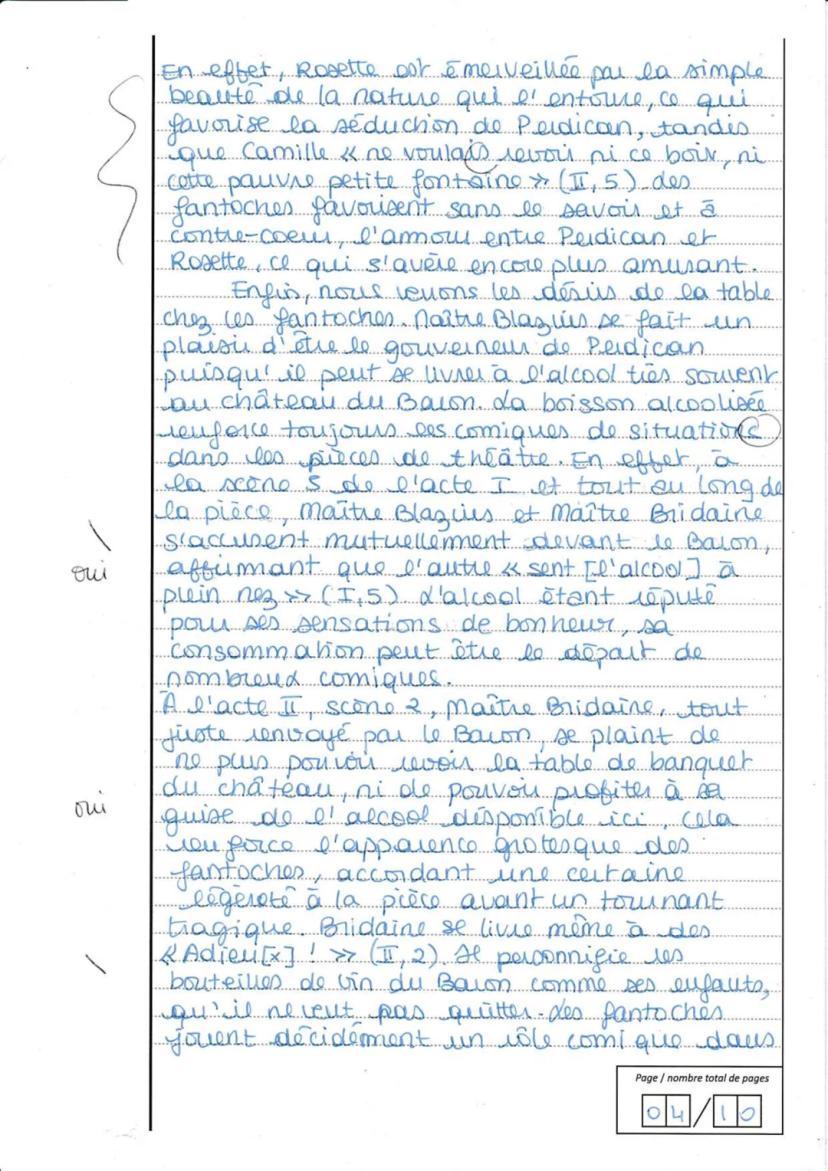 En effet, Rosette est émerveillée par la simple
beauté de la nature qui l'entoure, ce qui
favorise la séduction de Perdican, tandis
que Camille « ne voulais revoir ni ce bois, ni
cette pauvre petite fontaine » (II, 5). Les
fantoches favorisent sans le savoir et à
contre-coeur, l'amour entre Perdican et
Rosette, ce qui s'avère encore plus amusant.
Enfin, nous verrons les désirs de la table
chez les fantoches. Maître Blazius se fait un
plaisir d'être le gouverneur de Perdican
puisqu'il peut se livrer à l'alcool très souvent
au château du Baron. La boisson alcoolisée
renforce toujours les comiques de situations
dans les pièces de théâtre. En effet, à
la scène 5 de l'acte I et tout au long de
la pièce, Maître Blazius et Maître Bridaine
s'accusent mutuellement devant le Baron,
oui
affirmant que l'autre « sent [l'alcool] à
plein nez » (I,5) L'alcool étant réputé
pour ses sensations de bonheur, sa
consommation peut être le départ de
nombreux comiques.
À l'acte II, scène 2, Maître Bridaine, tout
juste renvoyé par le Baron, se plaint de
ne plus pouvoir revoir la table de banquet
du château, ni de pouvoir profiter à sa
oui
guise de l'alcool disponible ici, cela
renforce l'apparence grotesque des
fantoches, accordant une certaine
légèreté à la pièce avant un tournant
tragique. Bridaine se livre même à des
« Adieu[x] ! » (II,2). Il personnifie les
bouteilles de vin du Baron comme ses enfants,
qu'il ne veut pas quitter. Les fantoches
jouent décidément un rôle comique dans
Page / nombre total de pages
04/10